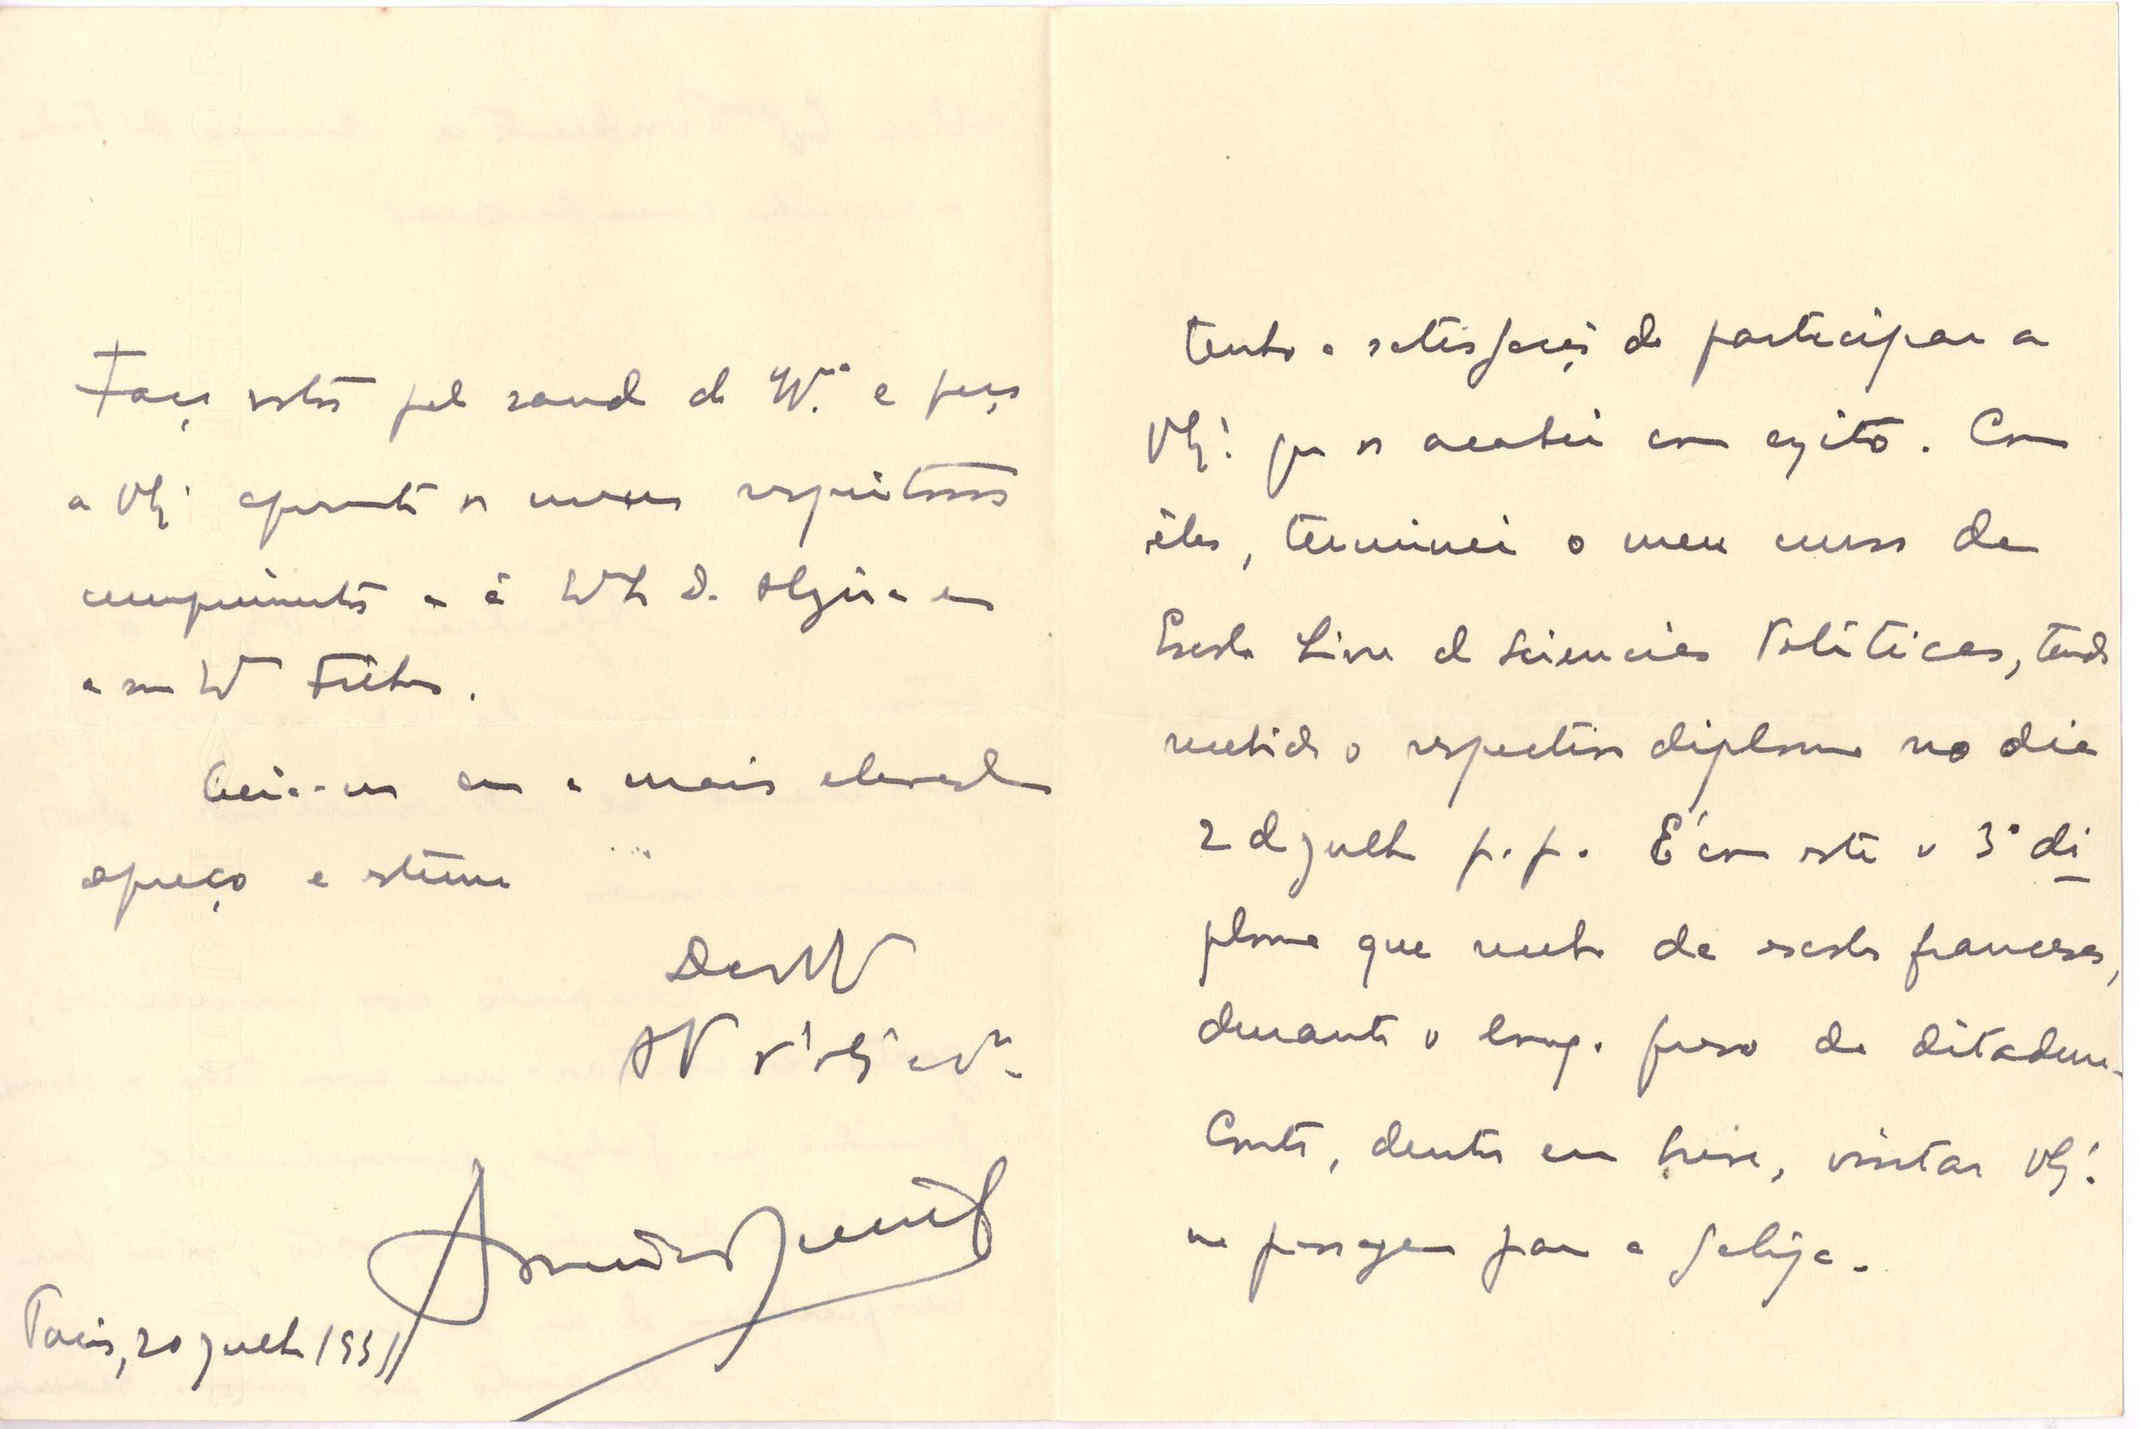 Tenho a satisfação de participar a
VEx.ª que os acabei com exito. Com
êles, terminei o meu curso da
Escola Livre de Sciencias Politicas, tendo
recebido o respectivo diploma no dia
2 de julho p.p. E' com este o 3º di
ploma que recebo de escolas francesas,
durante o longo prazo da ditadura.
Conto, dentro em breve, visitar VEx.ª
na passagem para a Galiza.
Faço votos pela saude de e peço
a VEx.ª apresente os meus respeitosos
cumprimentos a D. Algira e
a Filhos.
Creia-me com a mais elevada
apreço e estima
De
Paris, 20 julho 1931